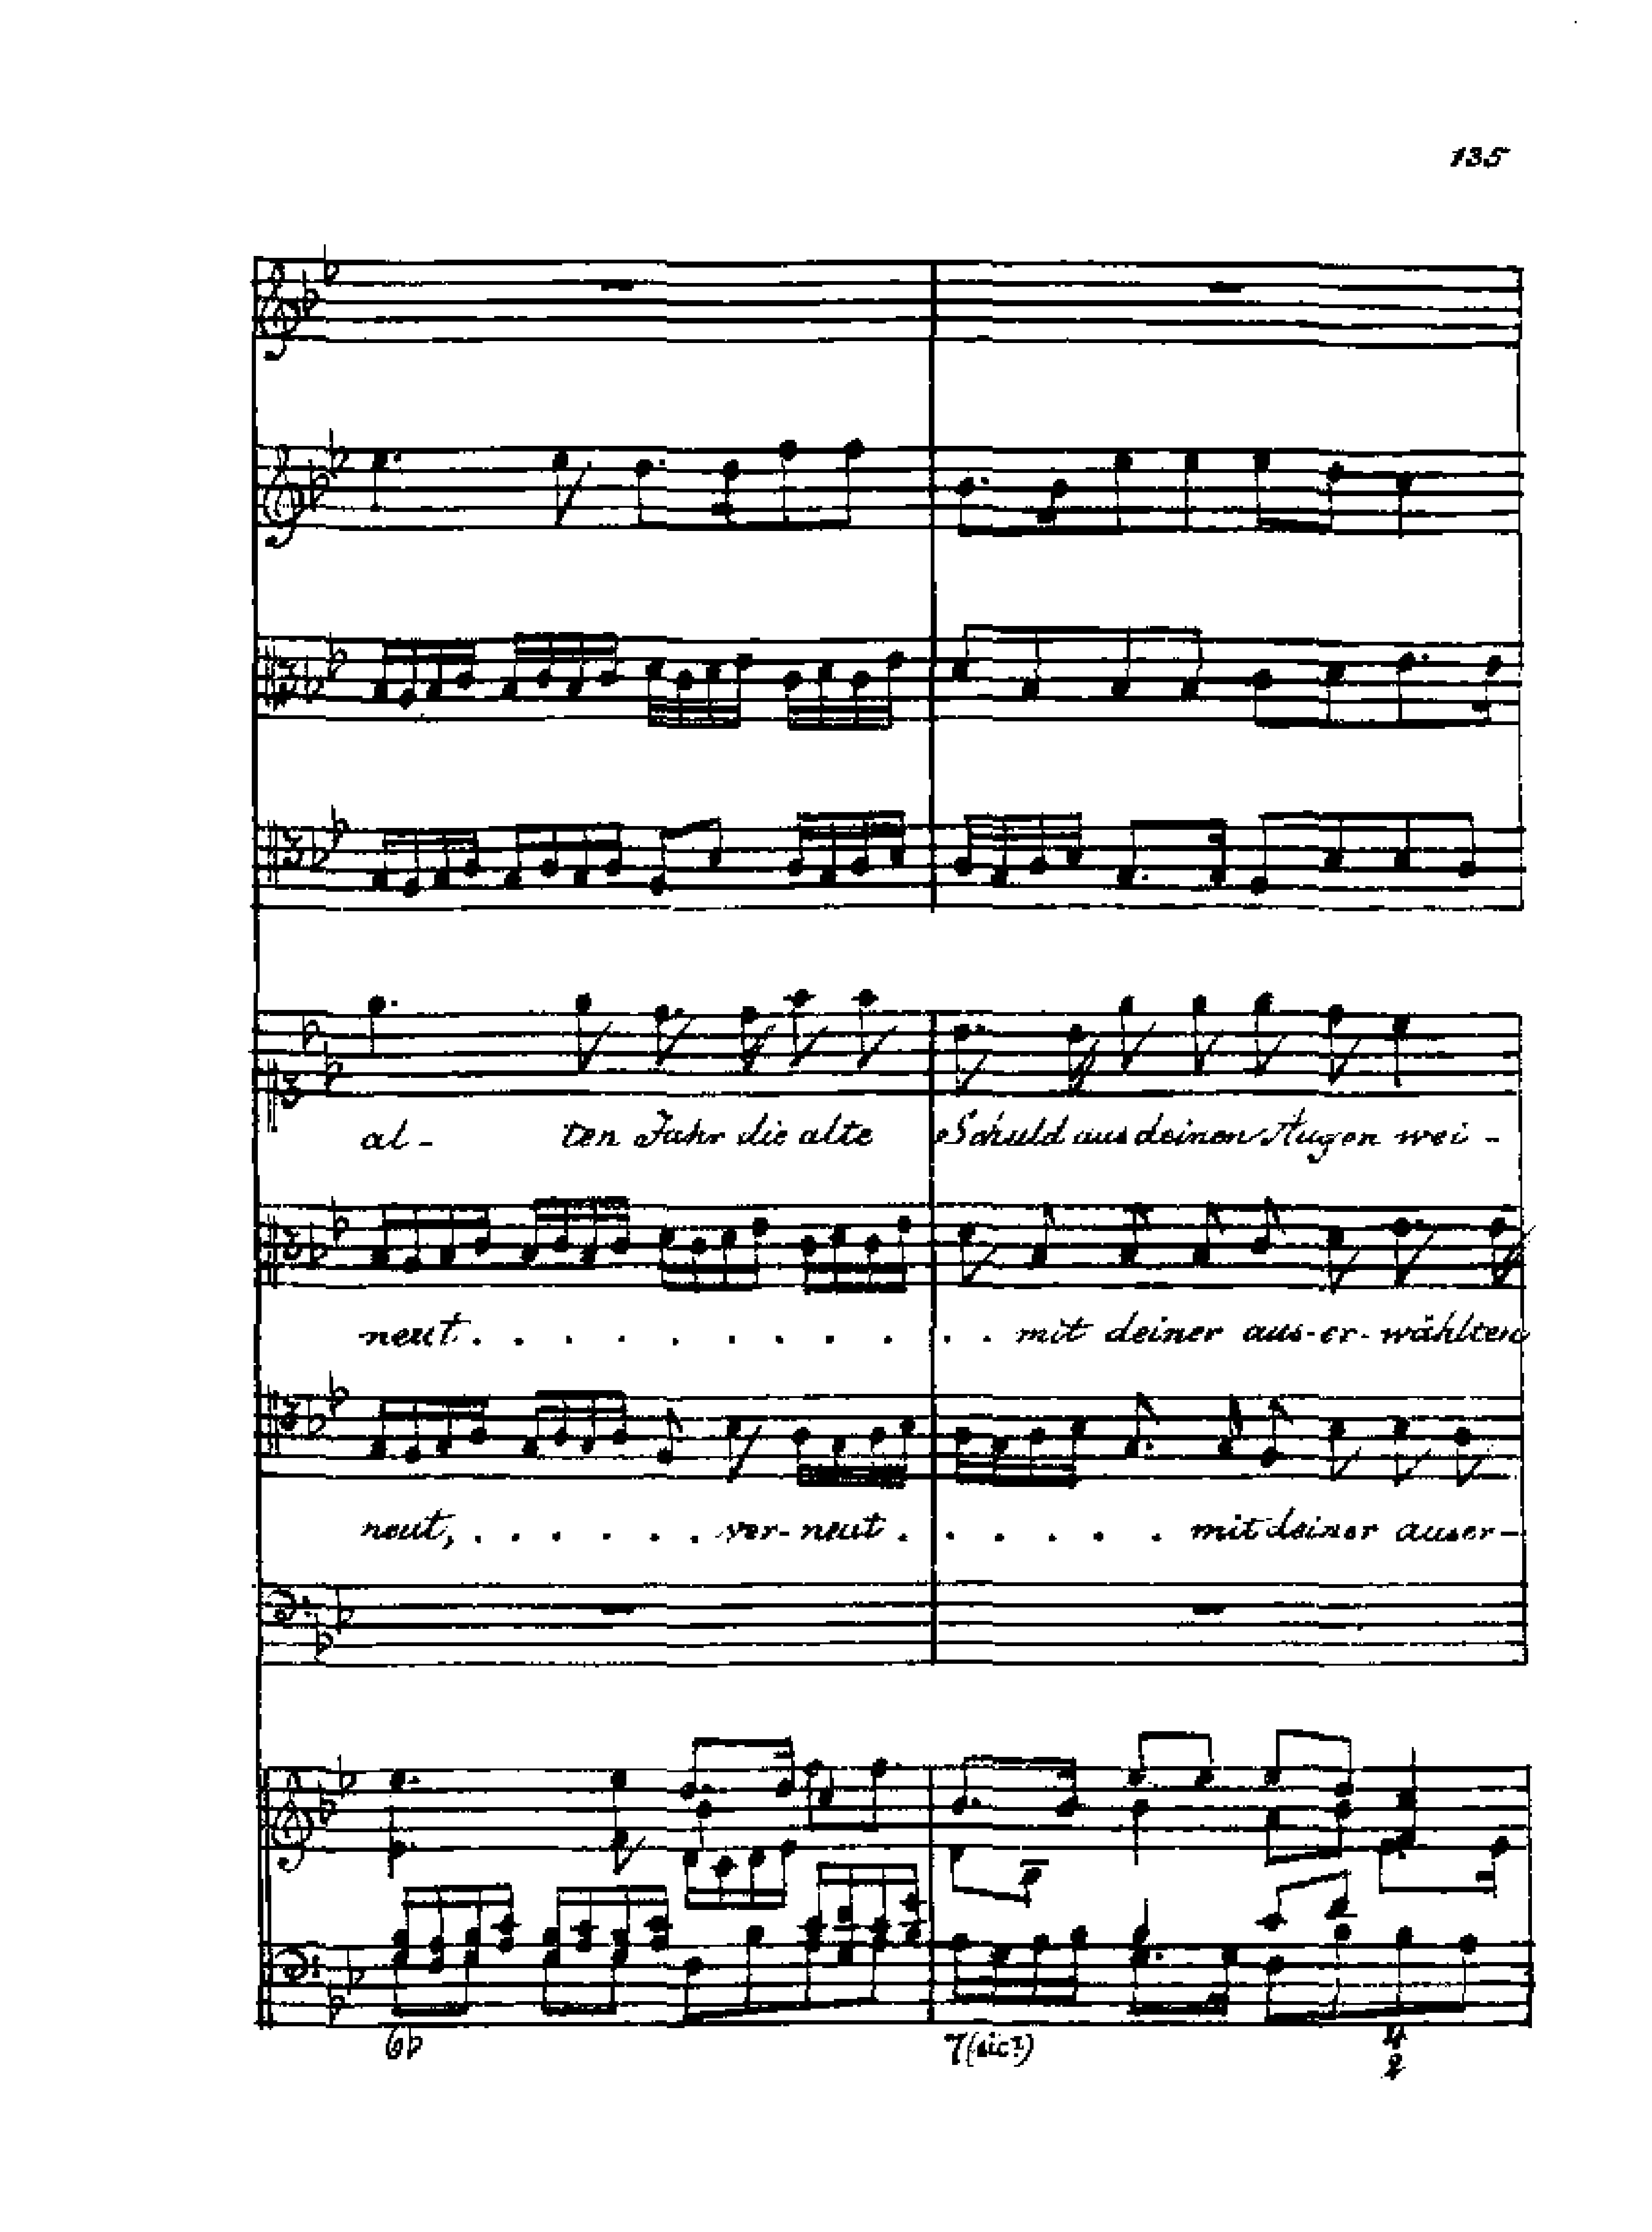 135
al- ten Jahr die alte Schuld aus deinen Augen wei-
neut. . . . . . . . . . . mit deiner aus-er-wählten
neut, . . . . . . ver-neut . . . . . . mit deiner auser-
6b 7 (sic!) 4
2